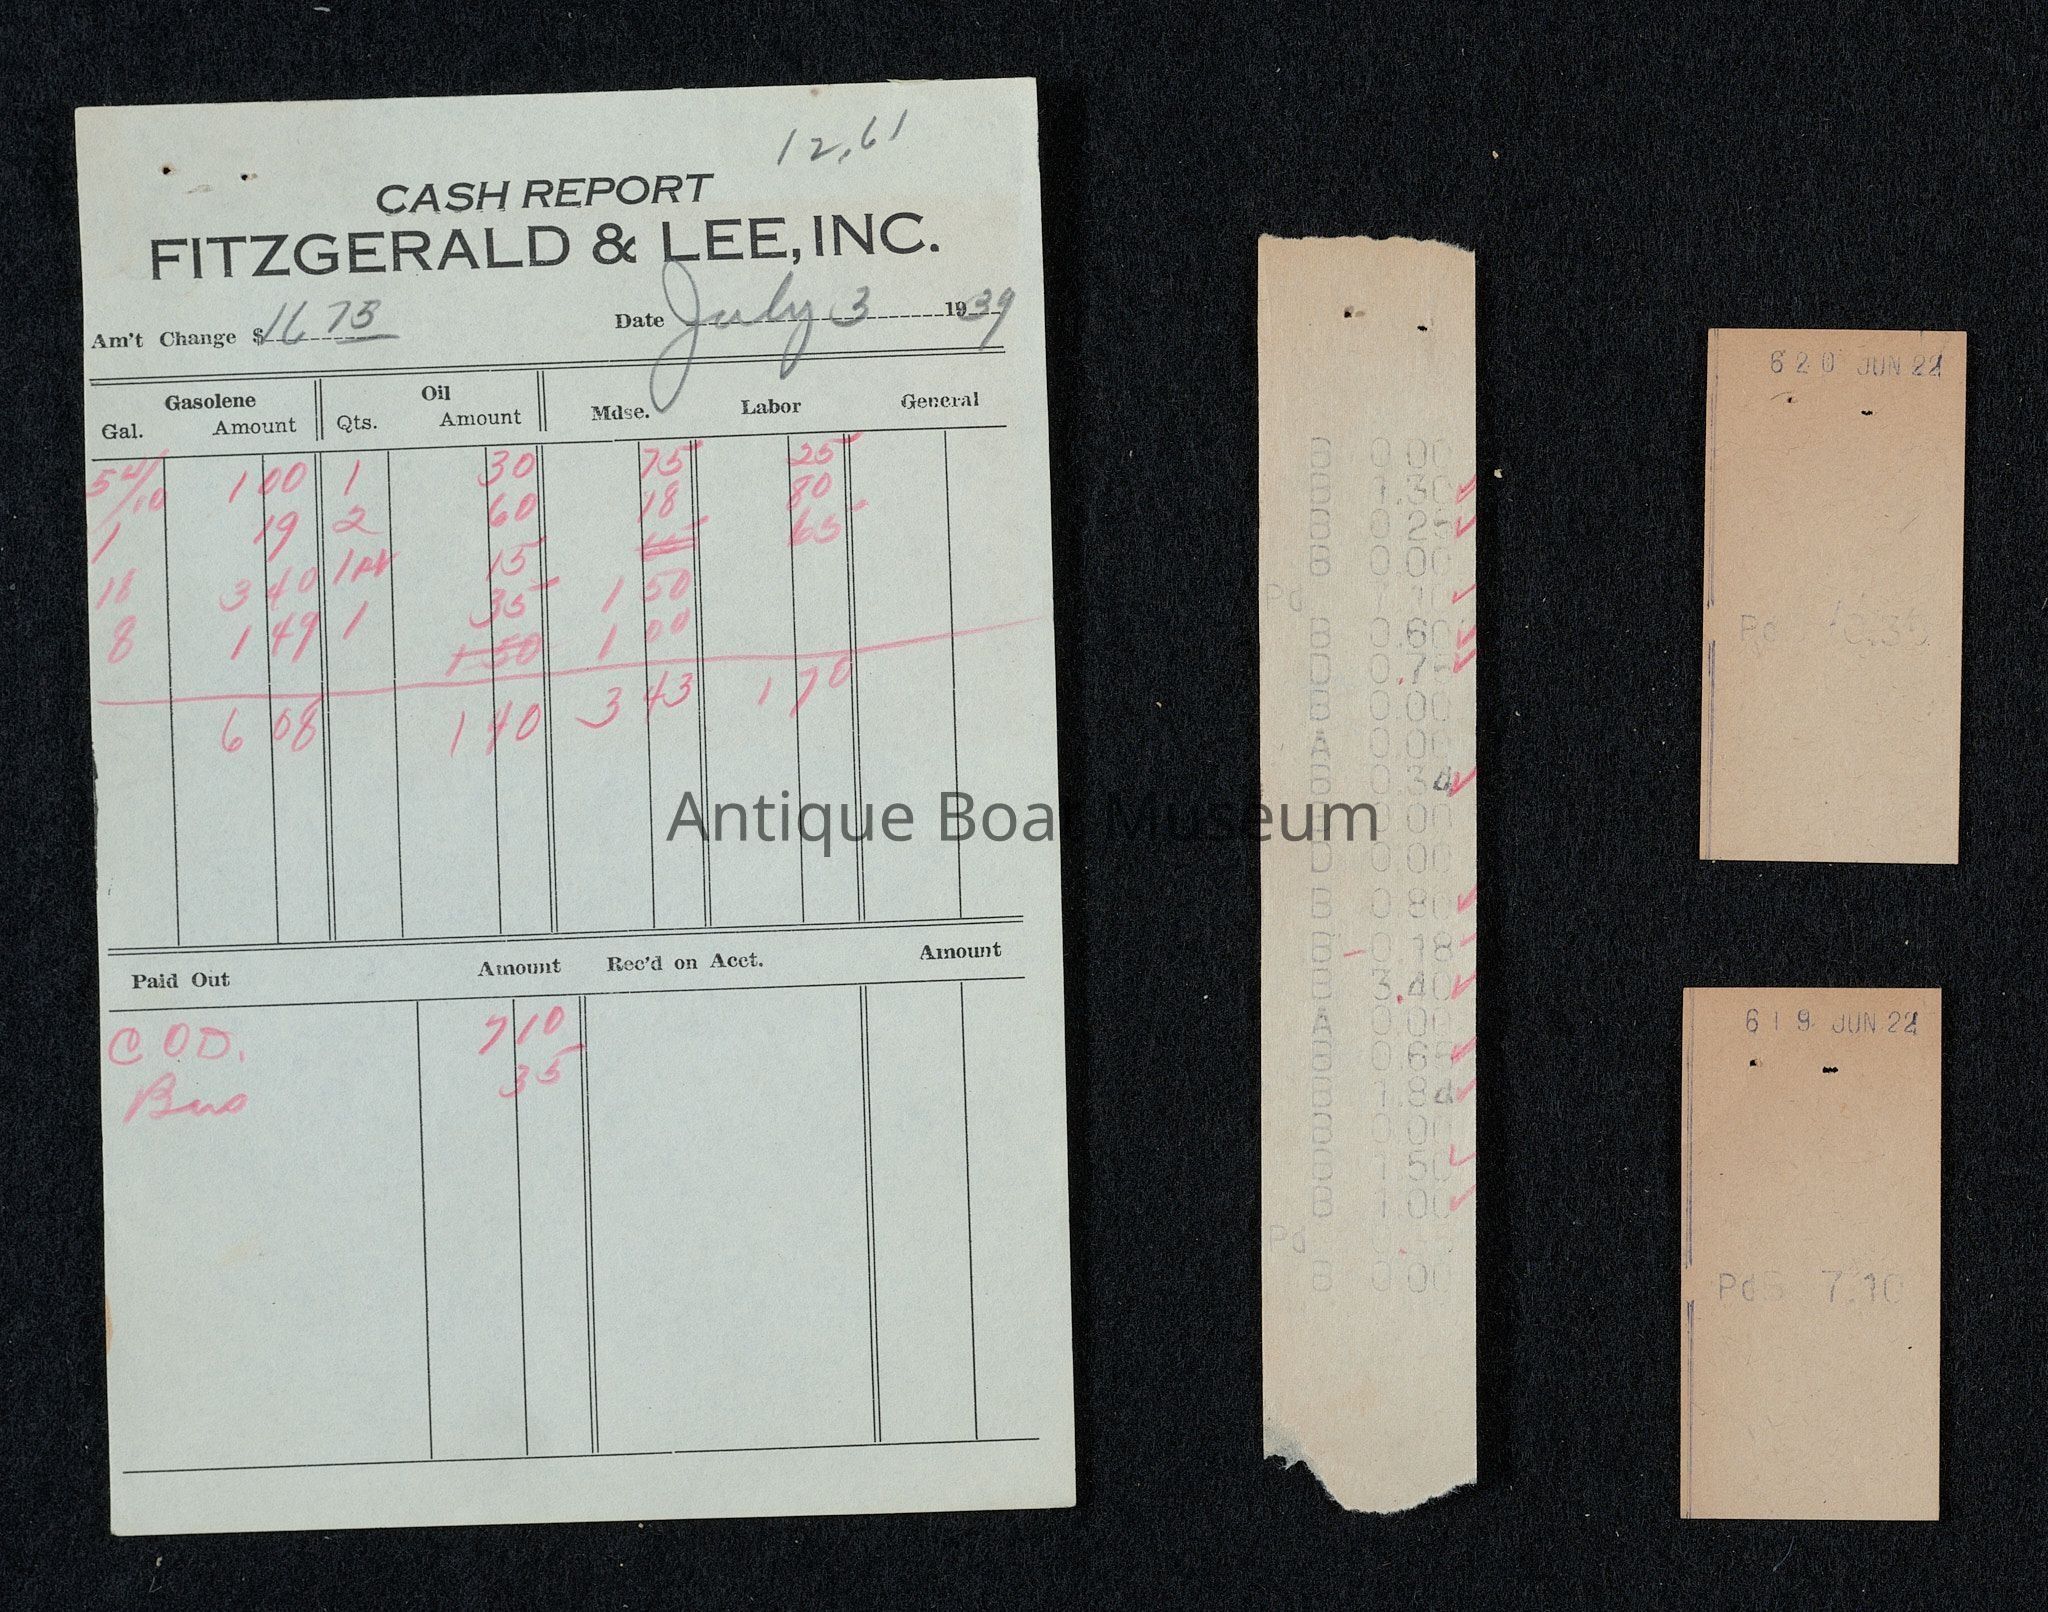 12.61
CASH REPORT
FITZGERALD & LEE, INC.
Am't Change $16 75 Date July 3 1939
Gasolene Oil Mdse. Labor General
Gal. Amount Qts. Amount
5 4/10 1 00 1 30 75 25
1 19 2 60 18 80
18 3 40 1 15 65
8 1 49 1 35 1 50
1 50 1 00
6 08 1 40 3 43 1 70
Paid Out Amount Rec'd on Acct. Amount
C.O.D. 7 10
Bus 35
B 0.00
B 1.30
B 0.25
B 0.00
Pd
B 0.60
D .75
B 0.00
A 0.00
B 0.34
0.00
D 0.00
B 0.80
B 0.18
B 3.40
A 0.00
B 0.65
B 1.84
B 0.00
1.50
B 1.00
Pd
B 0.00
620 JUN 22
Pd 0.35
619 JUN 22
PdB 7.10
Antique Boat Museum